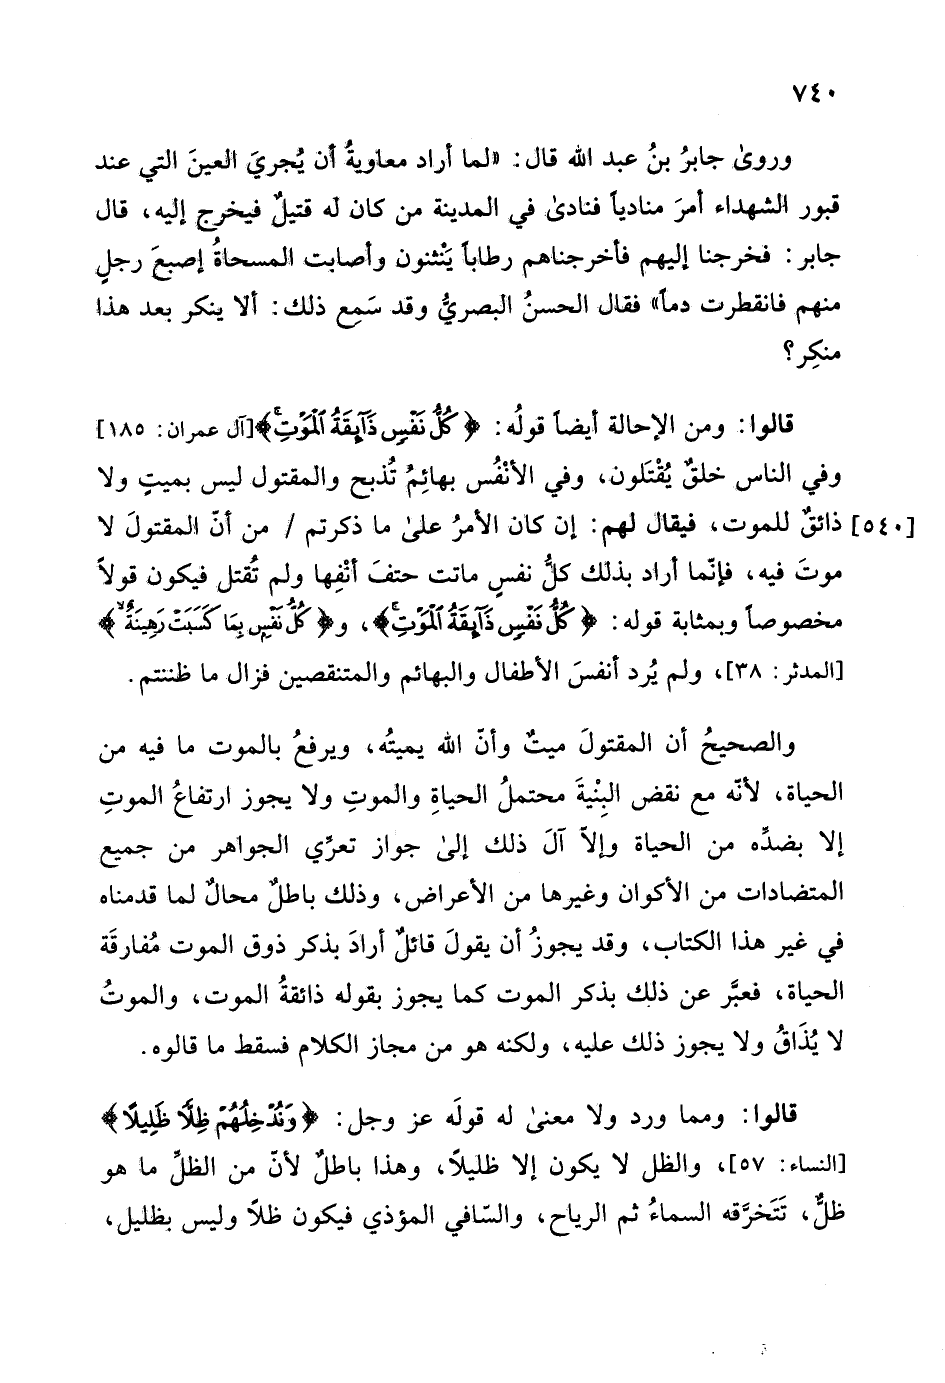 ٧٤٠
وروىٰ جابرُ بنُ عبد الله قال: «لما أراد معاويةُ أن يُجريَ العينَ التي عند
قبور الشهداء أمرَ منادياً فنادىٰ في المدينة من كان له قتيلٌ فيخرج إليه، قال
جابر: فخرجنا إليهم فأخرجناهم رطاباً يَنْثنون وأصابت المسحاةُ إصبعَ رجلٍ
منهم فانقطرت دماً» فقال الحسنُ البصريُّ وقد سَمِع ذلك: ألا ينكر بعد هذا
منكِر؟
قالوا: ومن الإحالة أيضاً قولُه: ﴿كُلُّ نَفْسٍ ذَآئِقَةُ ٱلْمَوْتِۚ﴾[آل عمران: ١٨٥]
وفي الناس خلقٌ يُقْتَلون، وفي الأنْفُس بهائِمُ تُذبح والمقتول ليس بميتٍ ولا
[٥٤٠] ذائقٌ للموت، فيقال لهم: إن كان الأمرُ علىٰ ما ذكرتم / من أنّ المقتولَ لا
موتَ فيه، فإنّما أراد بذلك كلُّ نفسٍ ماتت حتفَ أنْفِها ولم تُقتل فيكون قولاً
مخصوصاً وبمثابة قوله: ﴿كُلُّ نَفْسٍ ذَآئِقَةُ ٱلْمَوْتِۚ﴾، و﴿كُلُّ نَفْسٍۭ بِمَا كَسَبَتْ رَهِينَةٌۙ﴾
[المدثر: ٣٨]، ولم يُرد أنفسَ الأطفال والبهائم والمتنقصين فزال ما ظننتم.
والصحيحُ أن المقتولَ ميتٌ وأنّ الله يميتُه، ويرفعُ بالموت ما فيه من
الحياة، لأنّه مع نقض البِنْيةَ محتملُ الحياةِ والموتِ ولا يجوز ارتفاعُ الموتِ
إلا بضدِّه من الحياة وإلاّ آلَ ذلك إلىٰ جواز تعرِّي الجواهر من جميع
المتضادات من الأكوان وغيرها من الأعراض، وذلك باطلٌ محالٌ لما قدمناه
في غير هذا الكتاب، وقد يجوزُ أن يقولَ قائلٌ أرادَ بذكر ذوق الموت مُفارقَة
الحياة، فعبَّر عن ذلك بذكر الموت كما يجوز بقوله ذائقةُ الموت، والموتُ
لا يُذَاقُ ولا يجوز ذلك عليه، ولكنه هو من مجاز الكلام فسقط ما قالوه.
قالوا: ومما ورد ولا معنىٰ له قولَه عز وجل: ﴿وَنُدْخِلُهُمْ ظِلًّا ظَلِيلًا﴾
[النساء: ٥٧]، والظل لا يكون إلا ظليلاً، وهذا باطلٌ لأنّ من الظلِّ ما هو
ظلٌّ، تَتَخرَّقه السماءُ ثم الرياح، والسّافي المؤذي فيكون ظلاً وليس بظليل،